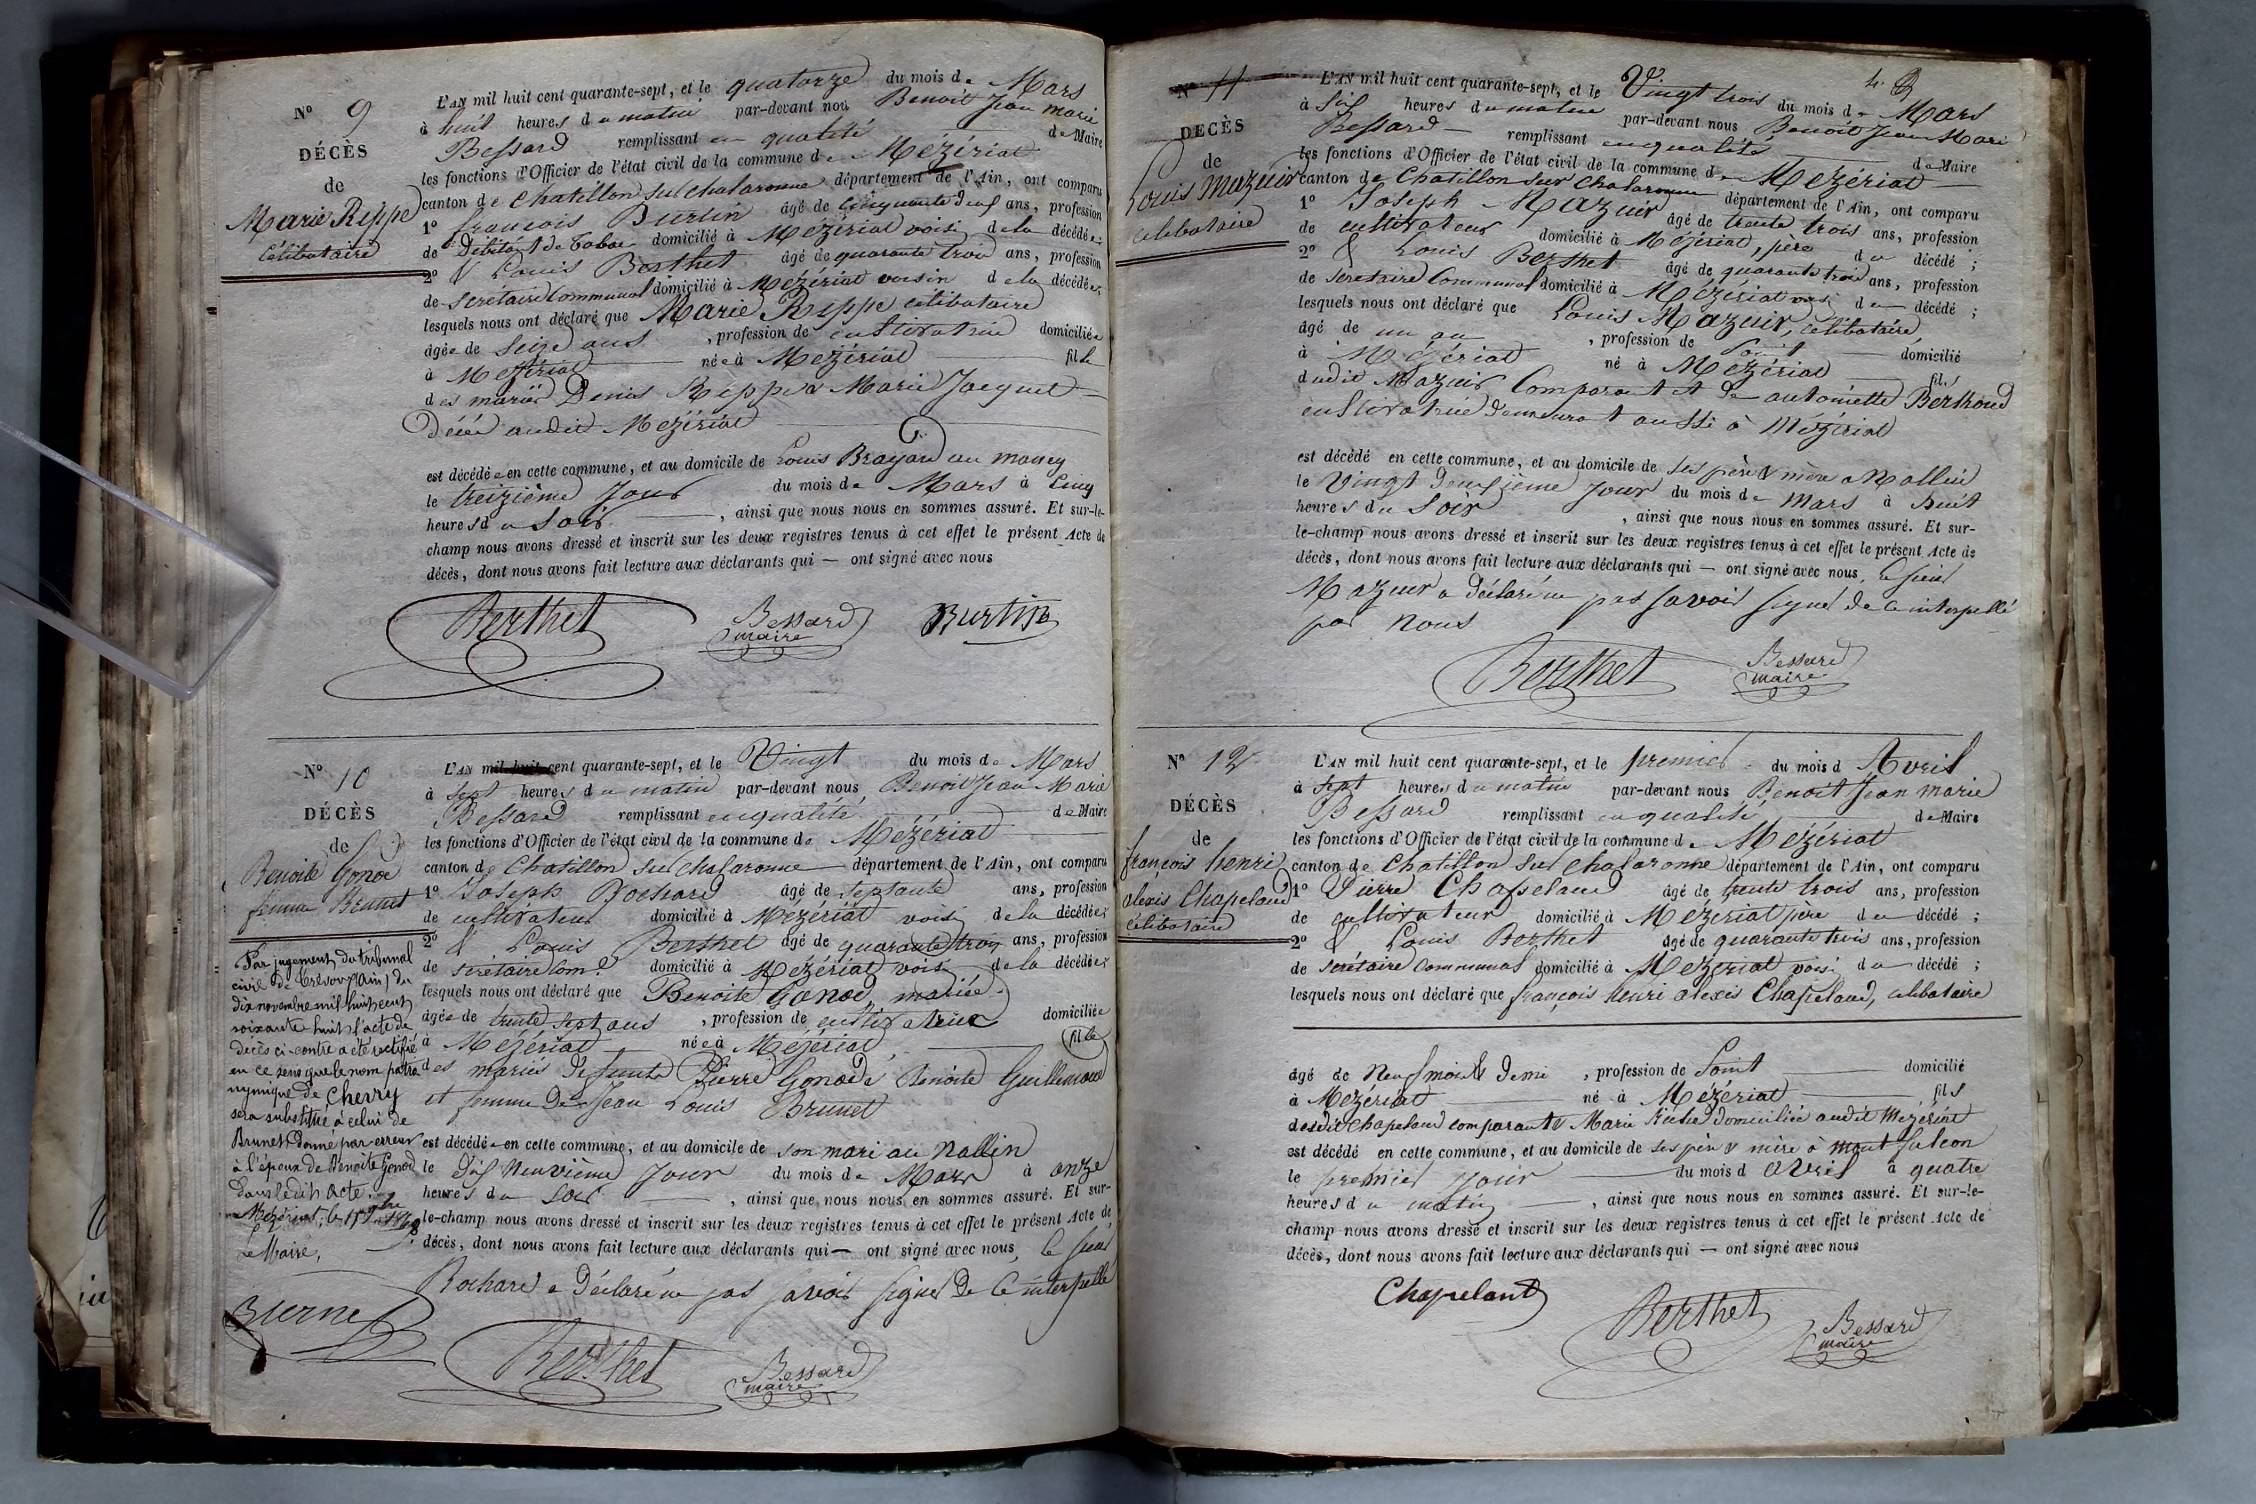 N° 9
DÉCÈS
de
Marie Rippe
Célibataire
L'AN mil huit cent quarante-sept, et le quatorze du mois de Mars
à huit heures du matin par-devant nous Benoit Jean marie
Bessard remplissant en qualité de Maire
les fonctions d'Officier de l'état civil de la commune de Mézériat
canton de Chatillon sur chalaronne département de l'Ain, ont comparu
1° françois Burtin âgé de Cinquante deux ans, profession
de Débitant de Tabac domicilié à Mézériat voisin de la décédée;
2° & Louis Berthet âgé de quarante trois ans, profession
de Secrétaire Communal domicilié à Mézériat voisin de la décédée;
lesquels nous ont déclaré que Marie Rippe célibataire
âgée de Seize ans , profession de cultivatrice domiciliée
à Mézériat née à Mézériat fille
des mariés Denis Rippe & Marie Jacquet
Décédé audit Mézériat
est décédée en cette commune, et au domicile de Louis Brayard au
le treizième Jour du mois de Mars à Cinq
heures du Soir , ainsi que nous nous en sommes assuré. Et sur-le-
champ nous avons dressé et inscrit sur les deux registres tenus à cet effet le présent Acte de
décès, dont nous avons fait lecture aux déclarants qui — ont signé avec nous
Berthet Bessard Burtin
maire
N° 10
DÉCÈS
de
Benoite Gonod
femme Brunet
Par jugement du tribunal
civil de Trévoux (Ain) du
dix novembre mil huit cent
soixante huit l'acte de
décès ci-contre a été rectifié
en ce sens que le nom patro
nymique de Cherry
sera substitué à celui de
Brunet donné par erreur
à l'époux de Benoite Gonod
dans ledit acte.
Mézériat, le
Le Maire,
L'AN mil huit cent quarante-sept, et le Vingt du mois de Mars
à sept heures du matin par-devant nous Benoit Jean Marie
Bessard remplissant en qualité de Maire
les fonctions d'Officier de l'état civil de la commune de Mézériat
canton de Chatillon sur Chalaronne département de l'Ain, ont comparu
1° Joseph Rochard âgé de septante ans, profession
de cultivateur domicilié à Mézériat voisin de la décédée;
2° & Louis Berthet âgé de quarante trois ans, profession
de secrétaire Com.l domicilié à Mézériat voisin de la décédée;
lesquels nous ont déclaré que Benoite Gonod, mariée
âgée de trente sept ans , profession de cultivatrice domiciliée
à Mézériat née à Mézériat fille
des mariés défunts Pierre Gonod & Benoite Guillemaud
et femme de Jean Louis Brunet
est décédée en cette commune, et au domicile de son mari au Nallin
le Dix Neuvième Jour du mois de Mars à onze
heures du soir , ainsi que nous nous en sommes assuré. Et sur-
le-champ nous avons dressé et inscrit sur les deux registres tenus à cet effet le présent Acte de
décès, dont nous avons fait lecture aux déclarants qui — ont signé avec nous, le sieur
Rochard a déclaré ne pas savoir signer de ce interpellé
Berthet Bessard
maire
4
N° 11
DÉCÈS
de
Louis Mazuir
célibataire
L'AN mil huit cent quarante-sept, et le Vingt trois du mois de Mars
à six heures du matin par-devant nous Benoit Jean Marie
Bessard remplissant en qualité de Maire
les fonctions d'Officier de l'état civil de la commune de Mézériat
canton de Chatillon sur Chalaronne département de l'Ain, ont comparu
1° Joseph Mazuir âgé de trente trois ans, profession
de cultivateur domicilié à Mézériat, père du décédé ;
2° & Louis Berthet âgé de quarante trois ans, profession
de Secretaire Communal domicilié à Mézériat voisin du décédé ;
lesquels nous ont déclaré que Louis Mazuir, célibataire
âgé de un an , profession de domicilié
à Mézériat né à Mézériat fils
dudit Mazuir Comparant et de antoinette Berthoud
cultivatrice demeurant aussi à Mézériat
est décédé en cette commune, et au domicile de ses père & mère a Nallin
le Vingt Deuxième Jour du mois de Mars à huit
heures du Soir , ainsi que nous nous en sommes assuré. Et sur-
le-champ nous avons dressé et inscrit sur les deux registres tenus à cet effet le présent Acte de
décès, dont nous avons fait lecture aux déclarants qui — ont signé avec nous, le sieur
Mazuir a déclaré ne pas savoir signer de ce interpellé
par nous
Berthet Bessard
maire
N° 12
DÉCÈS
de
françois henri
alexis Chapeland
célibataire
L'AN mil huit cent quarante-sept, et le premier du mois d Avril
à sept heures du matin par-devant nous Benoit Jean marie
Bessard remplissant en qualité de Maire
les fonctions d'Officier de l'état civil de la commune de Mézériat
canton de Chatillon sur Chalaronne département de l'Ain, ont comparu
1° Pierre Chapeland âgé de trente trois ans, profession
de cultivateur domicilié à Mézériat père du décédé ;
2° & Louis Berthet âgé de quarante trois ans, profession
de secrétaire Communal domicilié à Mézériat voisin du décédé ;
lesquels nous ont déclaré que françois henri alexis Chapeland, célibataire
âgé de Neuf mois & demi , profession de domicilié
à Mézériat né à Mézériat fils
dudit Chapeland comparant & Marie domiciliée audit Mézériat
est décédé en cette commune, et au domicile de ses père & mère à mont falcon
le premier Jour du mois d avril à quatre
heures du matin , ainsi que nous nous en sommes assuré. Et sur-le-
champ nous avons dressé et inscrit sur les deux registres tenus à cet effet le présent Acte de
décès, dont nous avons fait lecture aux déclarants qui — ont signé avec nous
Chapelant Berthet Bessard
maire